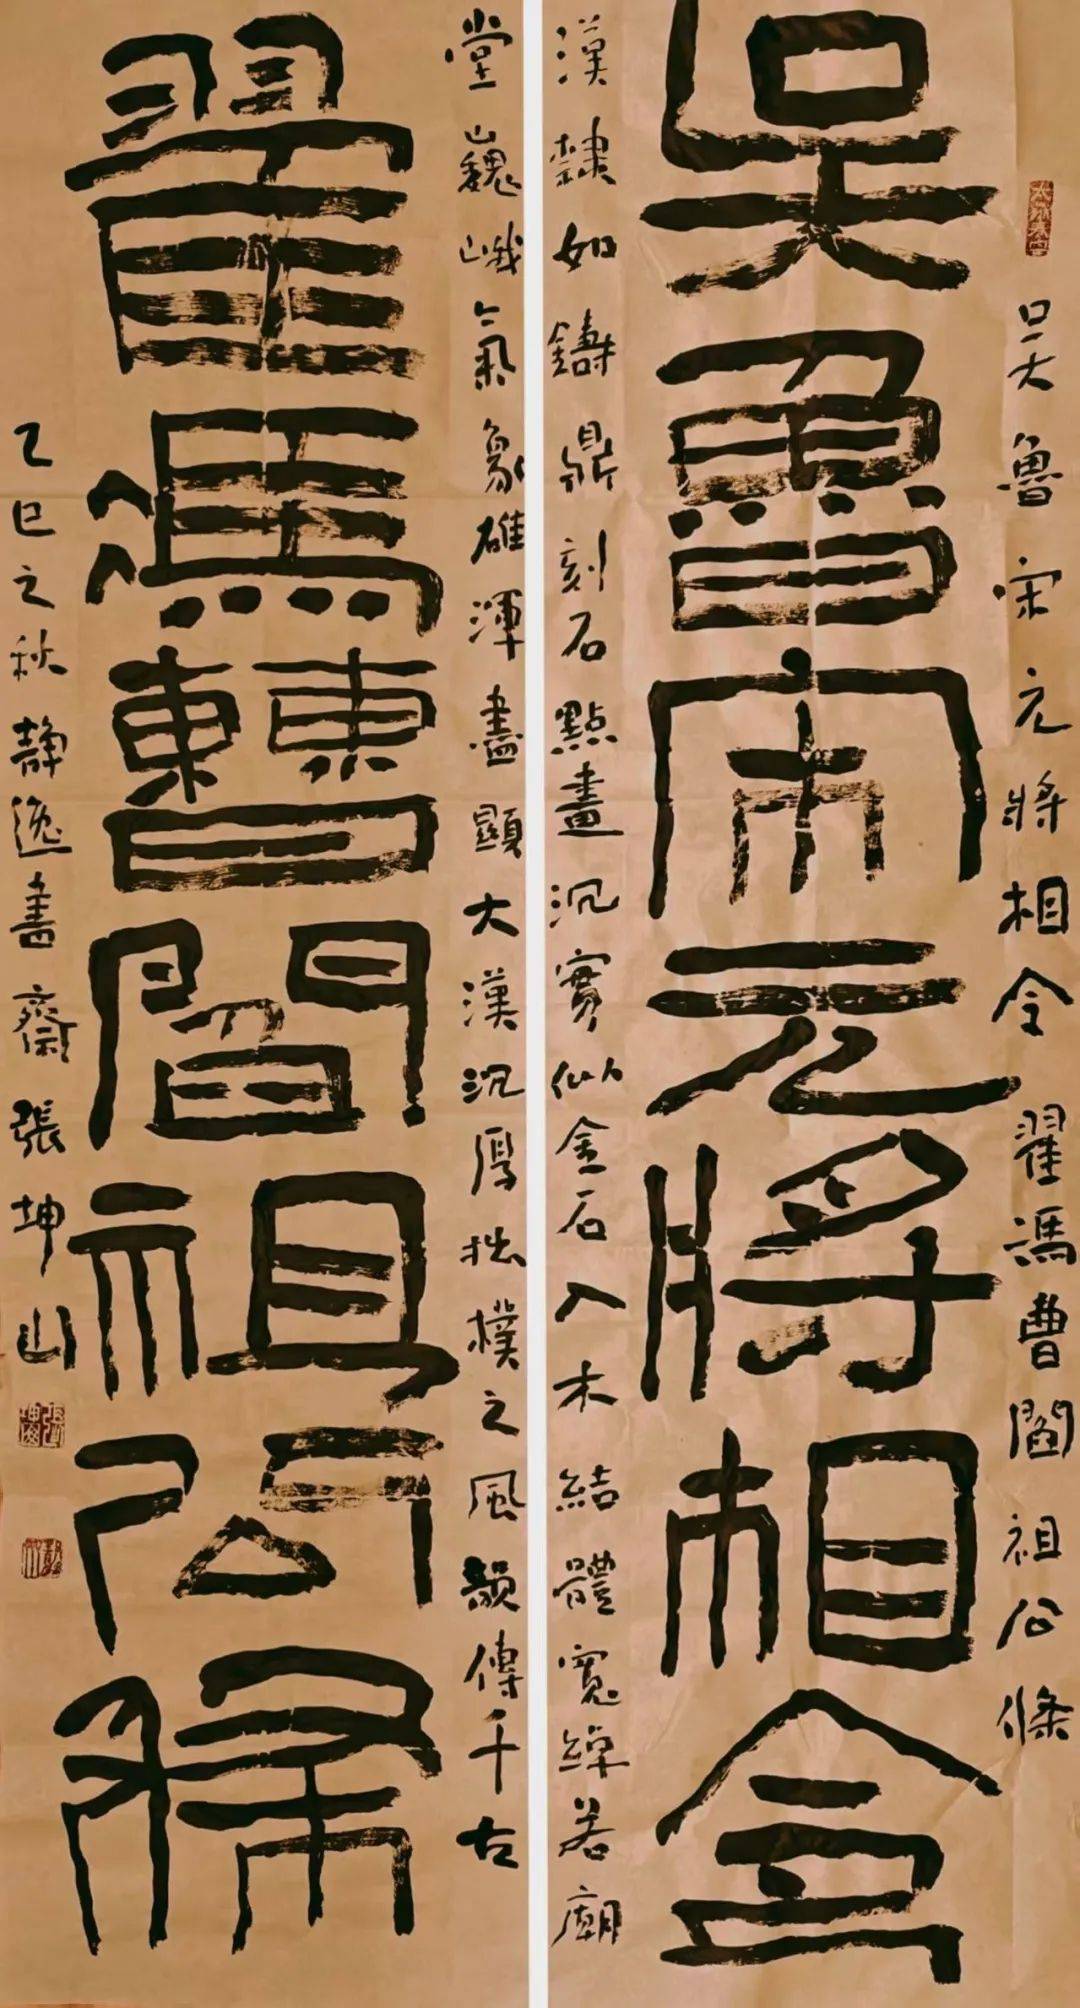 吴魯宋元將相令翟馮曹閻祖公條
吴魯宋元將相令
漢隸如鑄鼎刻石點畫沉實似金石入木結體寬綽若廟
堂巍峨氣象雄渾盡顯大漢沉厚拙樸之風韻傳千古
翟馮曹閻祖公條
乙巳之秋靜逸書齋張坤山